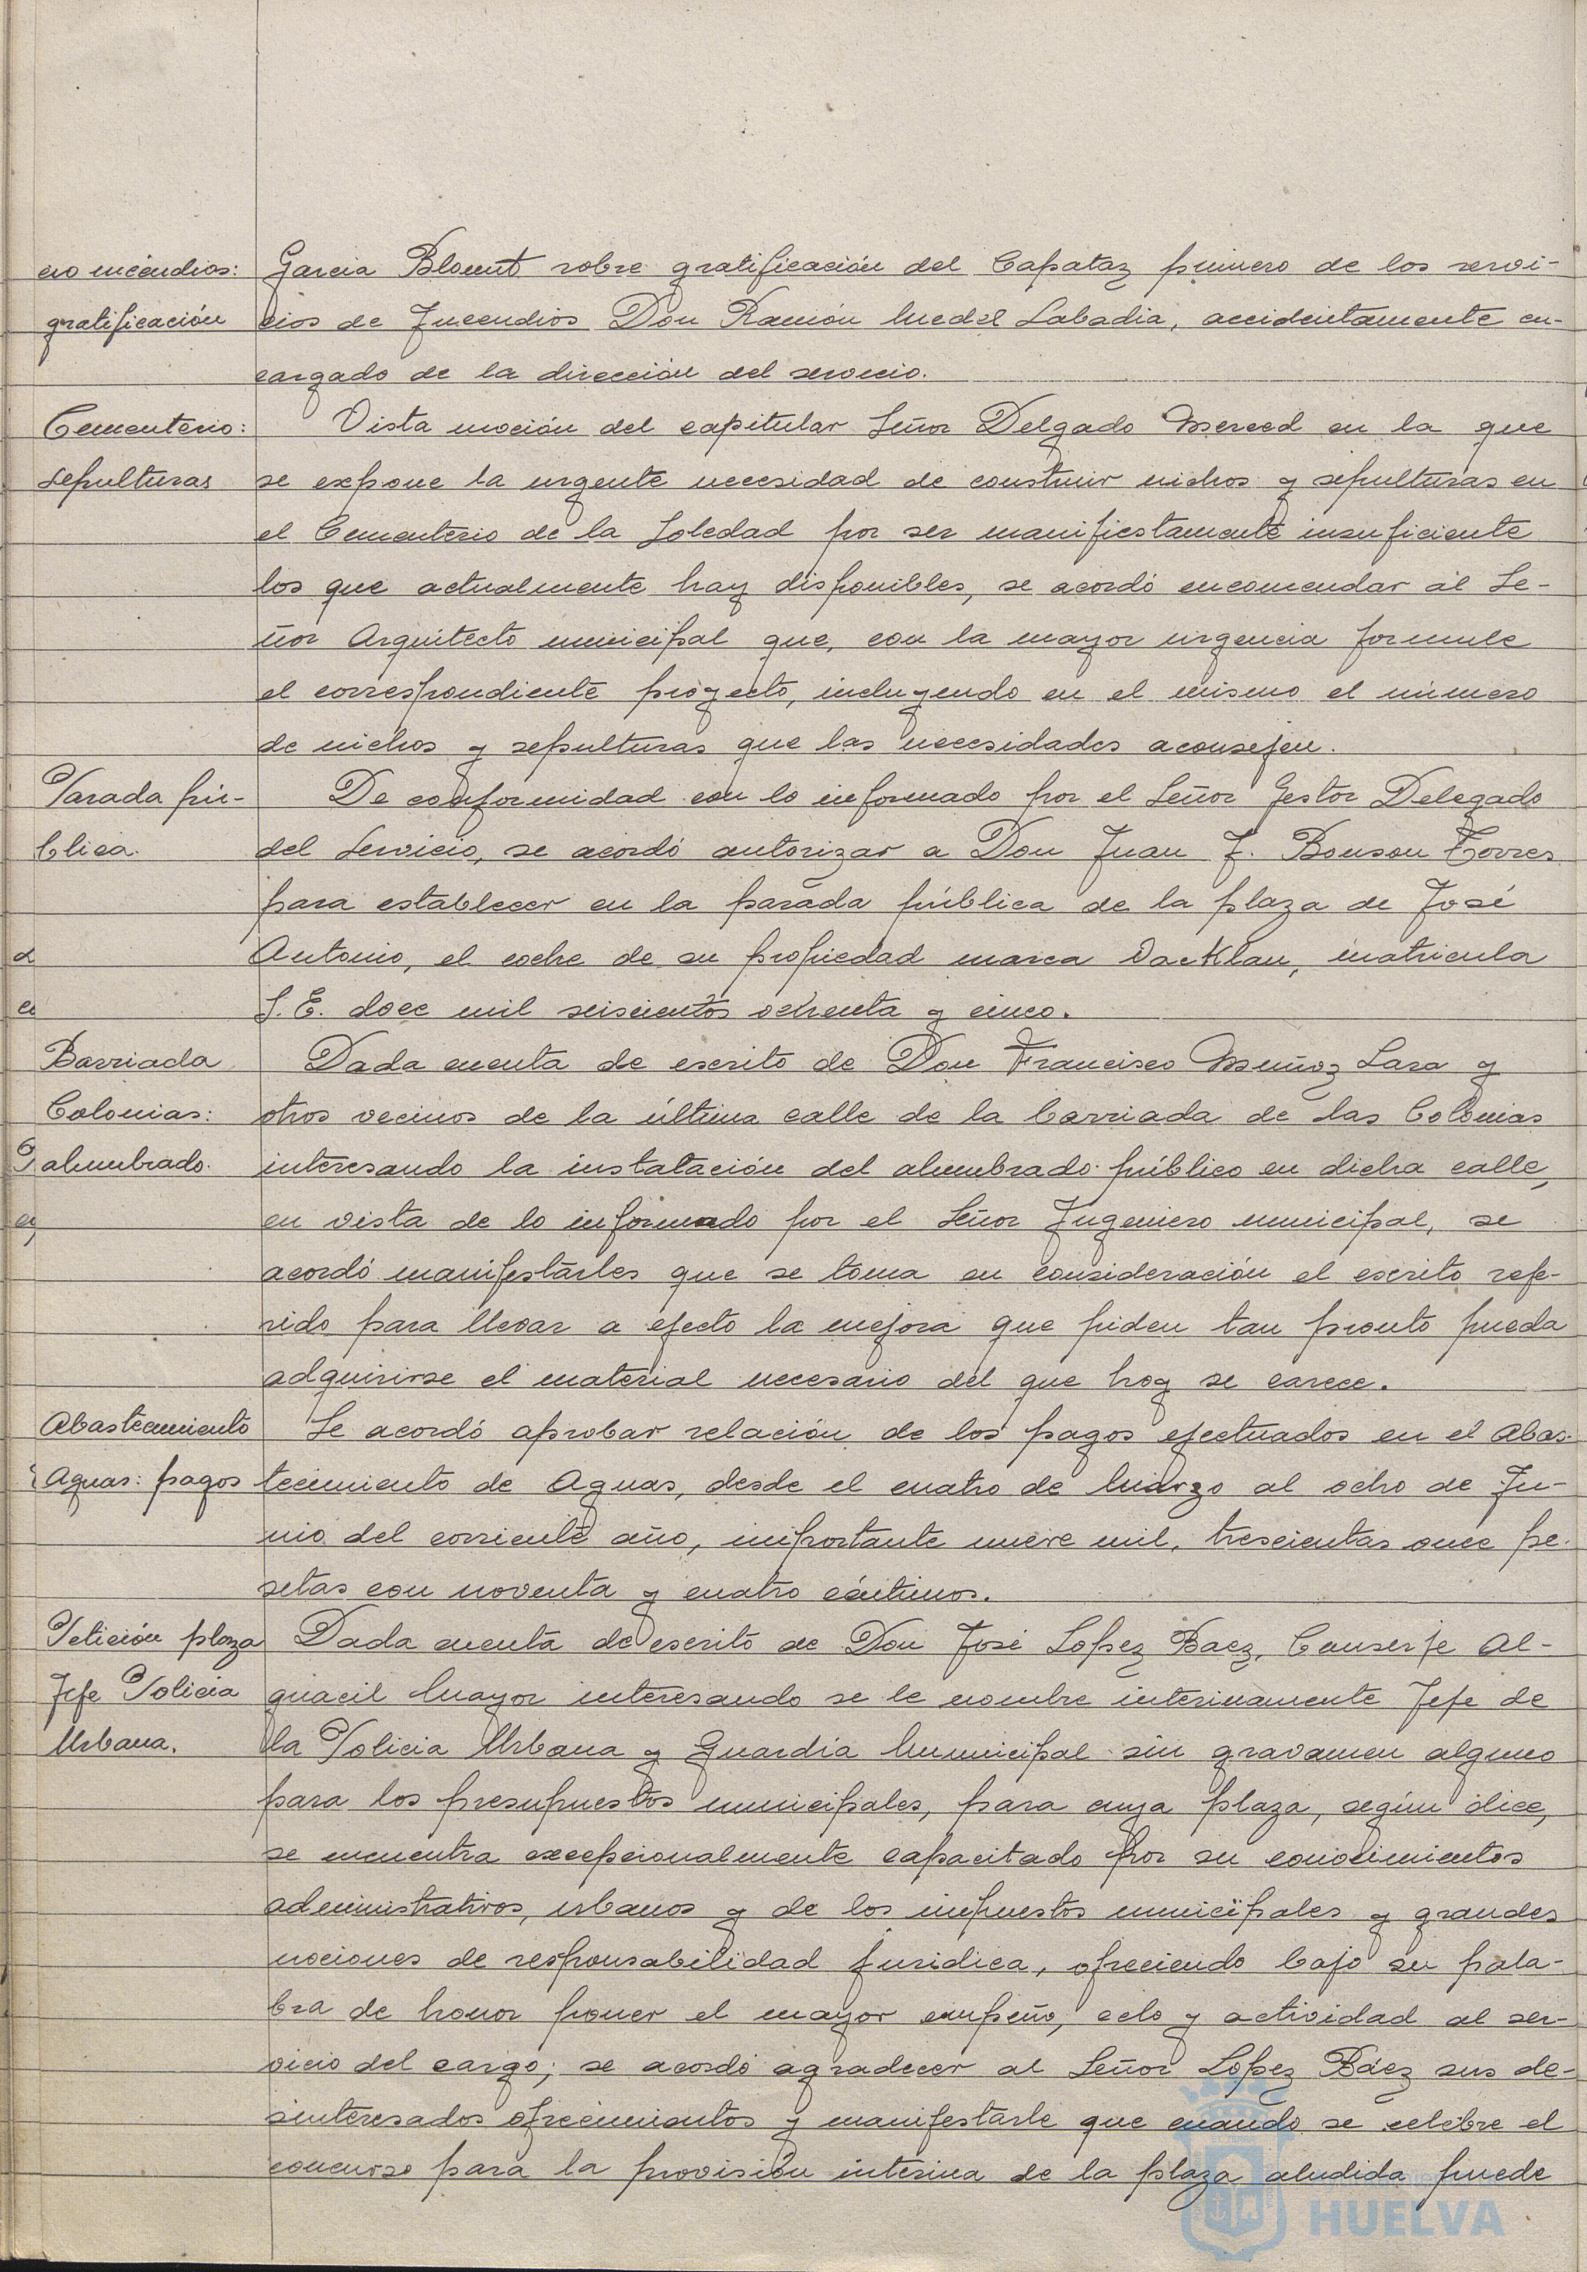 cio incendios:
gratificación
Garcia Blount sobre gratificación del Capataz primero de los servi-
cios de Incendios Don Ramón Labadia, accidentamente en-
cargado de la dirección del servicio.
Cementerio:
sepulturas
Vista moción del capitular Señor Delgado Merced en la que
se expone la urgente necesidad de construir nichos y sepulturas en
el Cementerio de la Soledad por ser manifiestamente insuficiente
los que actualmente hay disponibles, se acordó encomendar al Se-
ñor Arquitecto municipal que, con la mayor urgencia formule
el correspondiente proyecto, incluyendo en el mismo el número
de nichos y sepulturas que las necesidades aconsejen.
Parada pú-
blica.
De conformidad con lo informado por el Señor Gestor Delegado
del Servicio, se acordó autorizar a Don Juan J. Bonson Torres
para establecer en la parada pública de la plaza de José
Antonio, el coche de su propiedad marca matricula
S.E. doce mil seiscientos ochenta y cinco.
Barriada
Colonias:
alumbrado.
Dada cuenta de escrito de Don Francisco Muñoz Lara y
otros vecinos de la última calle de la barriada de las Colonias
interesando la instalación del alumbrado público en dicha calle,
en vista de lo informado por el Señor Ingeniero municipal, se
acordó manifestarles que se toma en consideración el escrito refe-
rido para llevar a efecto la mejora que piden tan pronto pueda
adquirirse el material necesario del que hoy se carece.
Abastecimiento
Aguas: pagos
Se acordó aprobar relación de los pagos efectuados en el Abas-
tecimiento de Aguas, desde el cuatro de Marzo al ocho de Ju-
nio del corriente año, importante nueve mil, trescientas once pe-
setas con noventa y cuatro céntimos.
Petición plaza
Jefe Policia
Urbana.
Dada cuenta de escrito de Don José Lopez Baez, Conserje Al-
guacil Mayor interesando se le nombre interinamente Jefe de
la Policia Urbana y Guardia Municipal sin gravamen alguno
para los presupuestos municipales, para cuya plaza, según dice,
se encuentra excepcionalmente capacitado por su conocimientos
administrativos, urbanos y de los impuestos municipales y grandes
nociones de responsabilidad juridica, ofreciendo bajo su pala-
bra de honor poner el mayor empeño, celo y actividad al ser-
vicio del cargo; se acordó agradecer al Señor Lopez Báez sus de-
sinteresados ofrecimientos y manifestarle que cuando se celebre el
concurso para la provisión interina de la plaza aludida puede
HUELVA